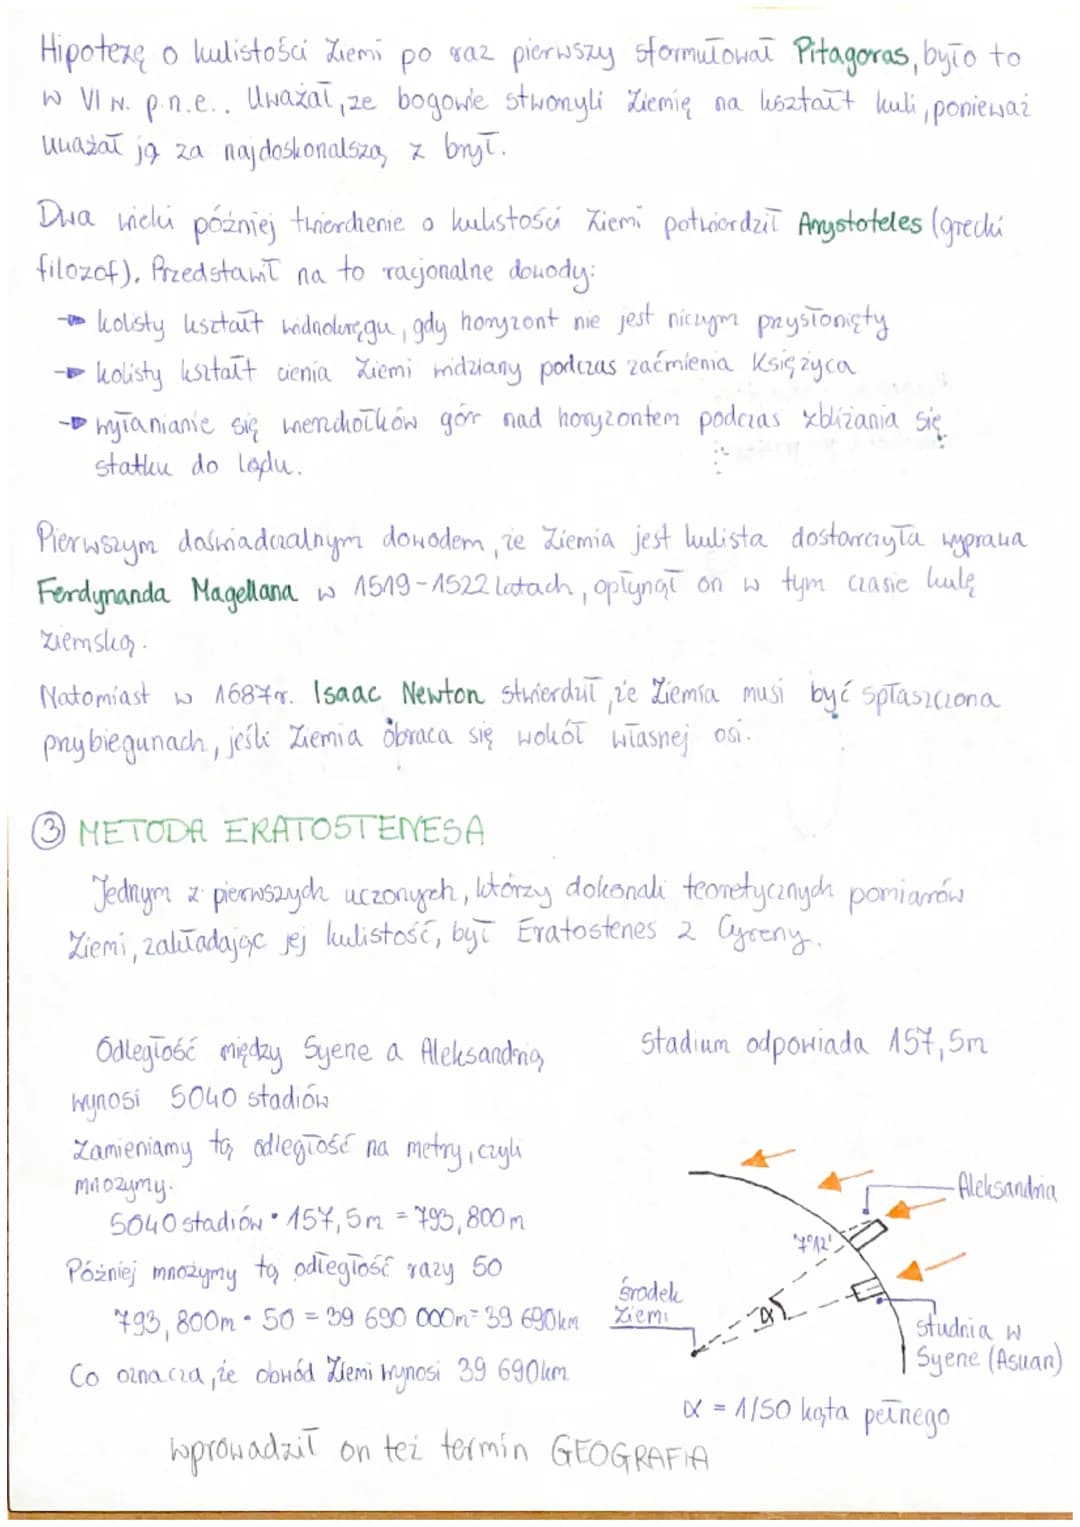 Hipotezę o kulistości Ziemi po raz pierwszy sformułował Pitagoras, było to
w VI w. p.n.e.. Uważał, że bogowie stworzyli Ziemię na kształt kuli, ponieważ
uważał ją za najdoskonalszą z brył.
Dwa wieki później twierdzenie o kulistości Ziemi potwierdził Arystoteles (grecki
filozof). Przedstawił na to racjonalne dowody:
kolisty kształt widnokręgu, gdy horyzont nie jest niczym przysłonięty
kolisty kształt cienia Ziemi widziany podczas zaćmienia Księżyca
wyłanianie się wierzchołków gór nad horyzontem podczas zbliżania się
statku do lądu.
Pierwszym doświadczalnym dowodem, że Ziemia jest kulista dostarczyła wyprawa
Ferdynanda Magellana w 1519-1522 latach, opłynął on w tym czasie kulę
ziemską.
Natomiast w 1687r. Isaac Newton stwierdził, że Ziemia musi być spłaszczona
przy biegunach, jeśli Ziemia obraca się wokół własnej osi.
③ METODA ERATOSTENESA
Jednym z pierwszych uczonych, którzy dokonali teoretycznych pomiarów
Ziemi, zakładając jej kulistość, był Eratostenes z Cyreny.
Odległość między Syene a Aleksandrią
wynosi 5040 stadiów
Zamieniamy tą odległość na metry, czyli
mnożymy.
5040 stadiów • 157,5m = 793,800m
Później mnożymy tą odległość razy 50
793,800m • 50 = 39 690 000m = 39 690km
Co oznacza, że obwód Ziemi wynosi 39 690km
Stadium odpowiada 157,5m
Aleksandria
7°12'
środek
Ziemi
α
studnia w
Syene (Asuan)
α = 1/50 kąta pełnego
wprowadził on też termin GEOGRAFIA